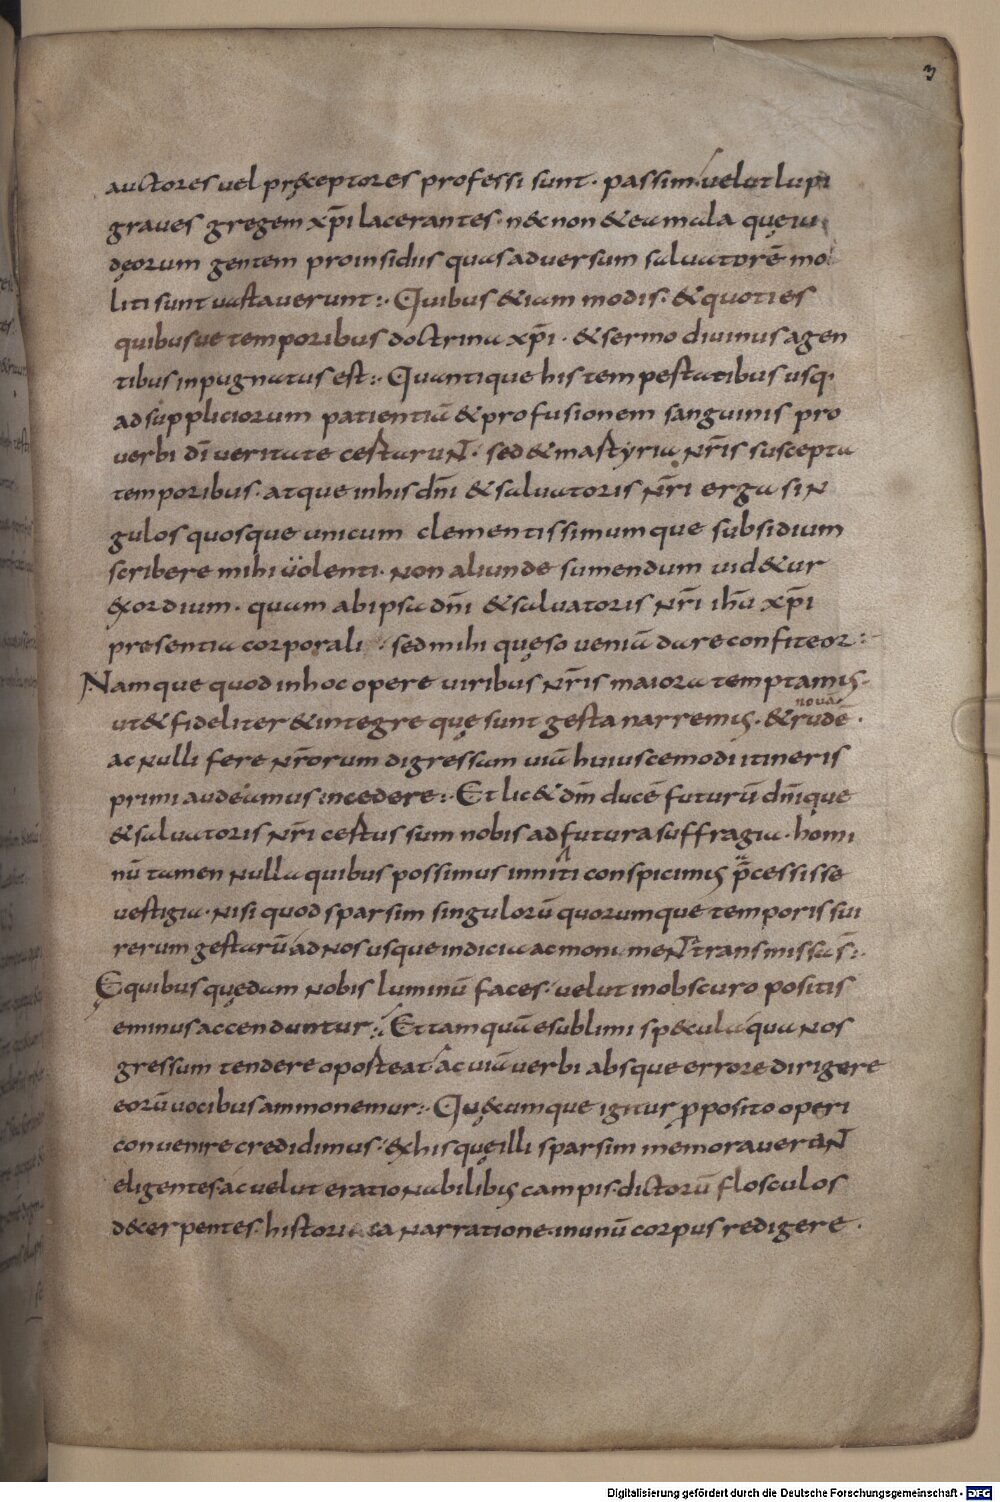 3
auctores vel pręceptores professi sunt · passim · velut lupi
graves gregem xp̄i lacerantes · n&non & ea mala quę iu
dęorum gentem proinsidiis quas adversum salvatorē mo
liti sunt vastaverunt :· Quibus &iam modis · & quoties
quibusve temporibus doctrina xp̄i · & sermo divinus agen
tibus inpugnatus est :· Quantique his tempestatibus usq·
ad suppliciorum patientiā & profusionem sanguinis pro
verbi dī veritate certarunt · sed & martyria nr̄is suscepta
temporibus · atque in his dn̄i & salvatoris nr̄i erga sin
gulos quosque unicum clementissimumque subsidium
scribere mihi volenti · non aliunde sumendum vid&ur
exordium · quam ab ipsa dn̄i & salvatoris nr̄i ih̄u xp̄i
presentia corporali · sed mihi quęso veniā dare confiteor :·
Namque quod in hoc opere viribus nr̄is maiora temptamus ·
ut & fideliter & integre quę sunt gesta narremus · & rudē ·
novā
ac nulli fere nr̄orum digressam viā huiuscemodi itineris
primi audeamus incedere :· Et lic& dm̄ ducē futurū dn̄ique
& salvatoris nr̄i certus sum nobis adfutura suffragia · homi
nū tamen nulla quibus possimus inniti conspicimus p̄cessisse
vestigia · nisi quod sparsim singulorū quorumque temporis sui
rerum gestarū ad nos usque indicia ac monimenta transmissa s̄ :·
E quibus quędam nobis luminū faces · velut in obscuro positis
eminus accenduntur :· Et tamquā e sublimi specula qua nos
gressum tendere oporteat ac viā verbi absque errore dirigere
eorū vocibus ammonemur :· Quęcumque igitur p̱posito operi
convenire credidimus · ex his quę illi sparsim memoraverunt
eligentes ac velut e rationabilibus campis · dictorū flosculos
decerpentes · historica narratione · in unū corpus redigere ·
Digitalisierung gefördert durch die Deutsche Forschungsgemeinschaft - DFG